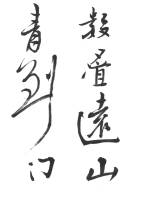 数叠遠山
青到门